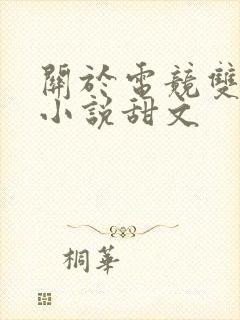 關於電競雙
小說甜文
桐華